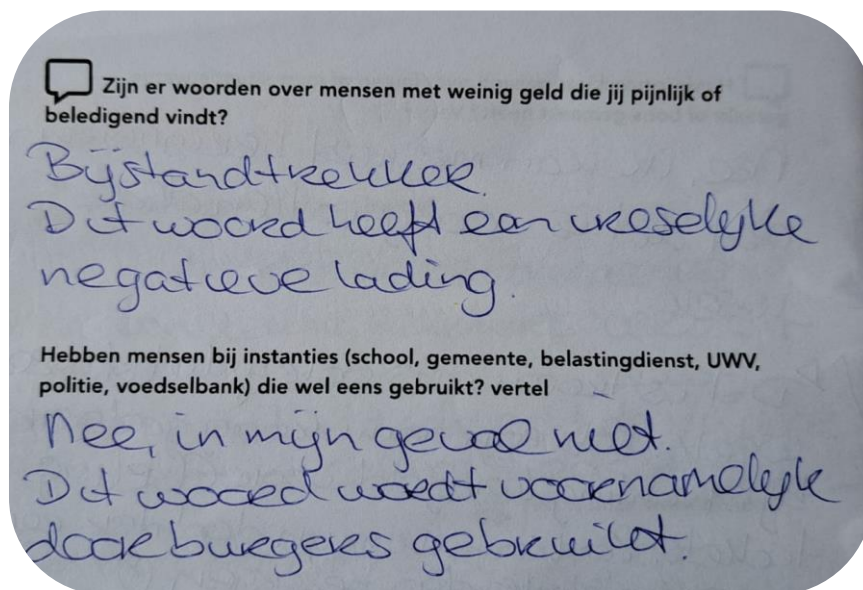 Zijn er woorden over mensen met weinig geld die jij pijnlijk of
beledigend vindt?
Bijstandtrekker.
Dit woord heeft een vreselijke
negatieve lading.
Hebben mensen bij instanties (school, gemeente, belastingdienst, UWV,
politie, voedselbank) die wel eens gebruikt? vertel
Nee, in mijn geval niet.
Dit woord wordt voornamelijk
door burgers gebruikt.